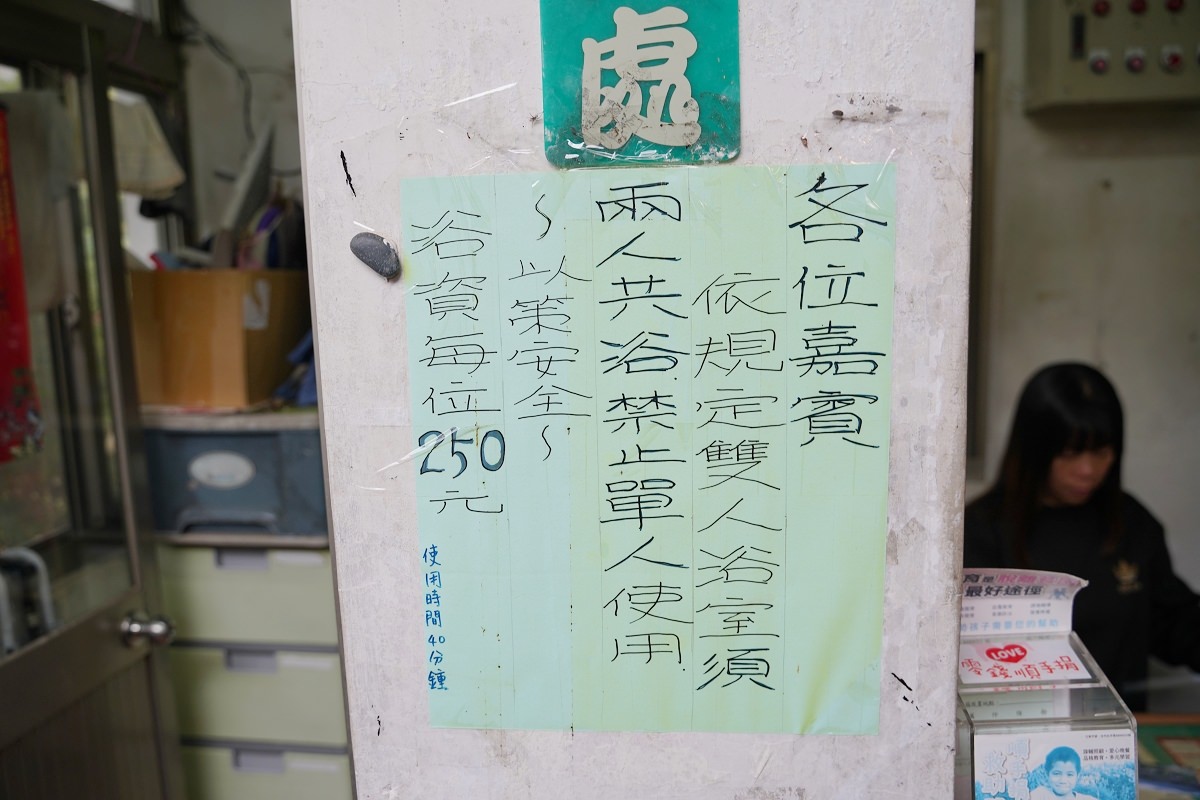 處
各位嘉賓
依規定雙人浴室須
兩人共浴禁止單人使用
~以策安全~
浴資每位250元
使用時間40分鐘
最好途徑
LOVE
零錢順手捐